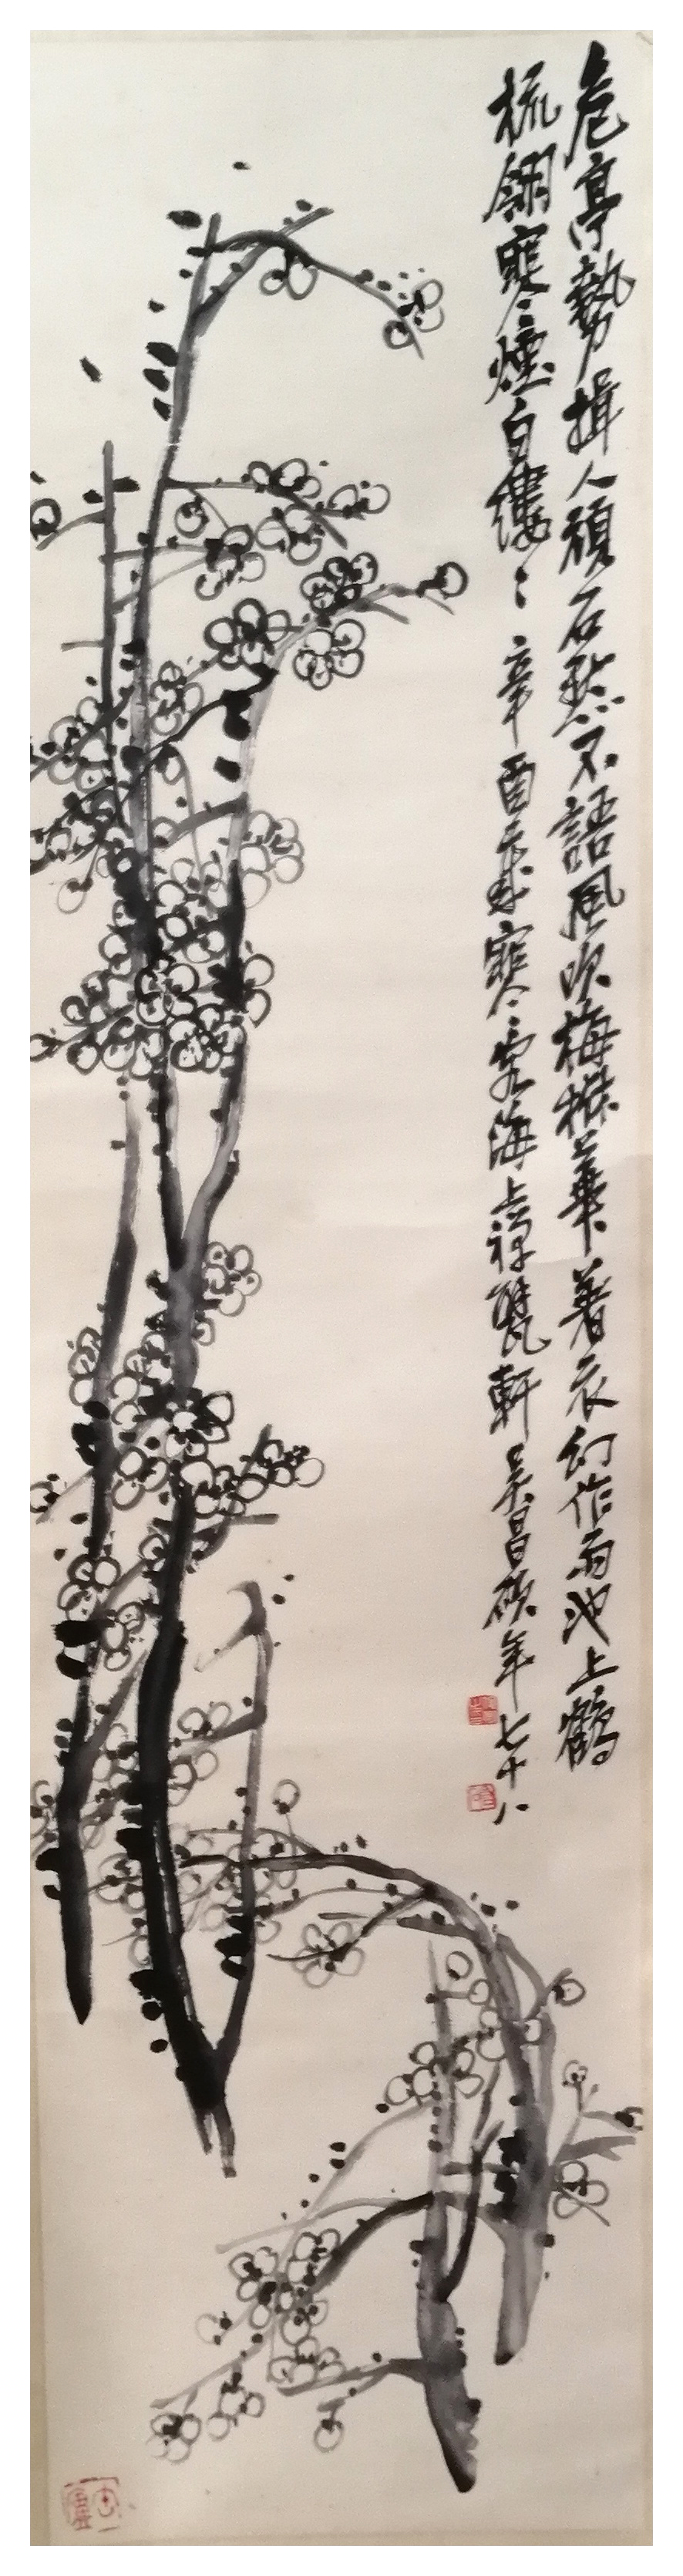 危亭勢揖人頑石默不語風吹梅樹華著衣幻作雨池上鶴
梳翎寒煙白縷縷辛酉歲寒客海上禪甓軒吳昌碩年七十八